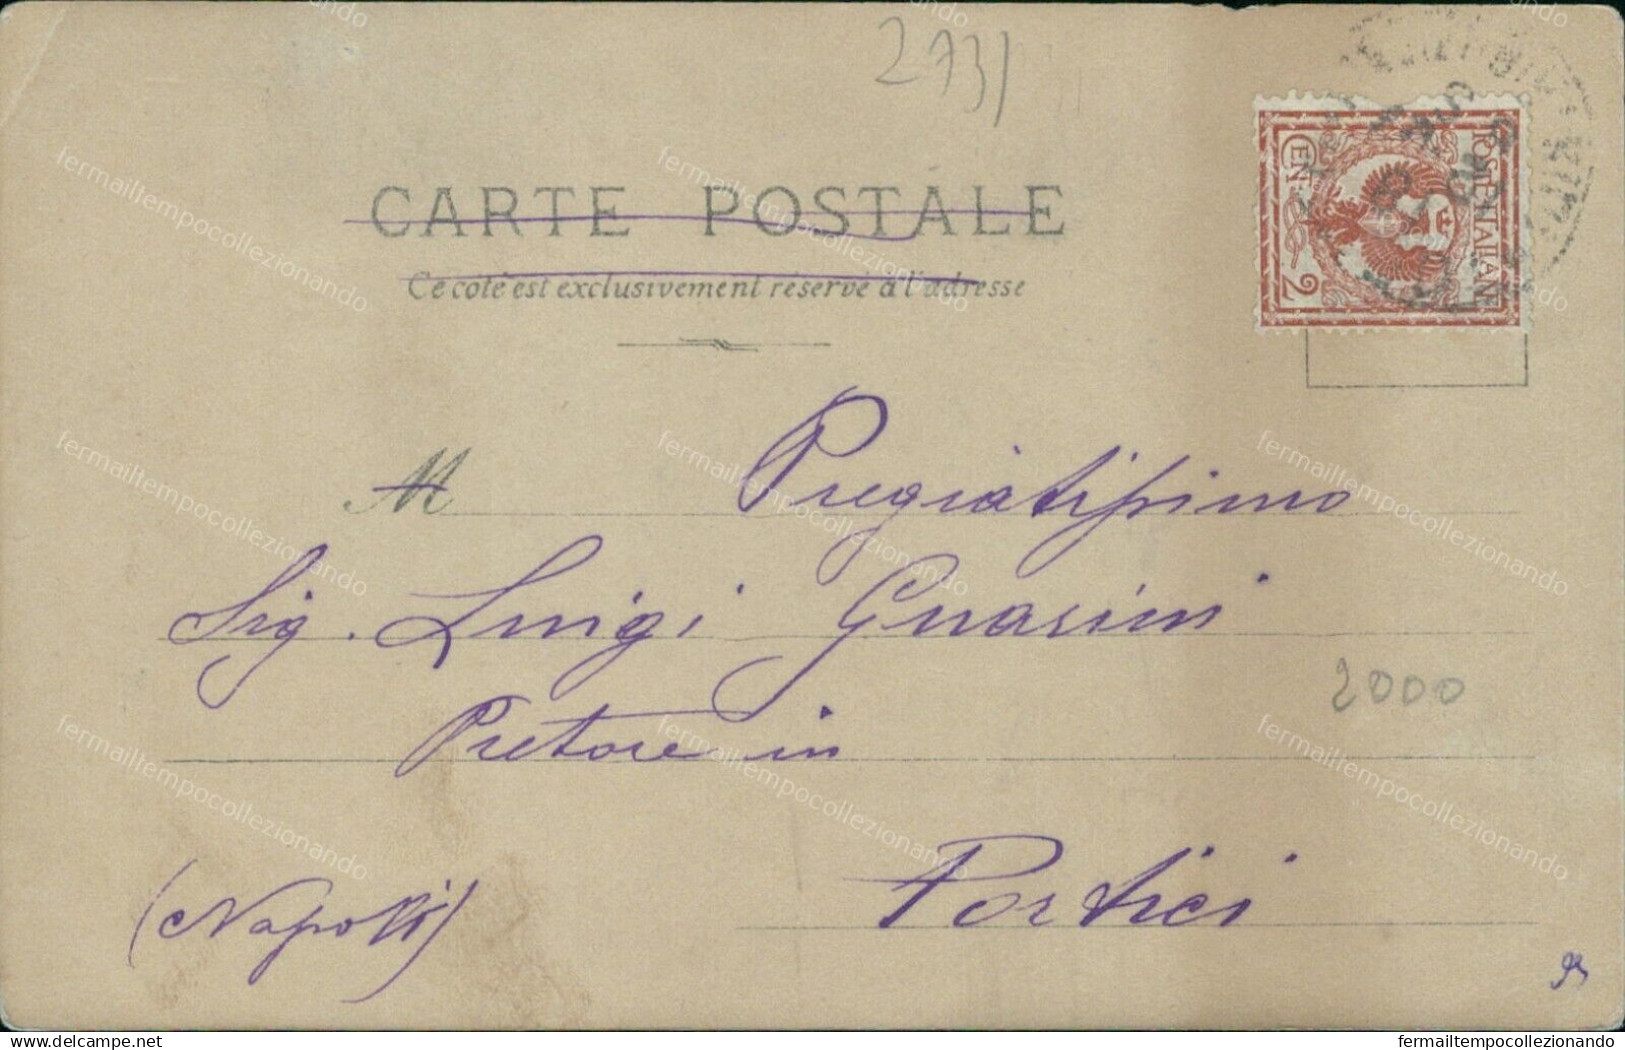 2731
CARTE POSTALE
Ce coté est exclusivement réservé à l'adresse
POSTE ITALIANE
CEN. 2
M Pregiatissimo
Sig. Luigi Guarini
Pretore in
2000
Portici
(Napoli)
fermailtempocollezionando
delcampe.net fermailtempocollezionando